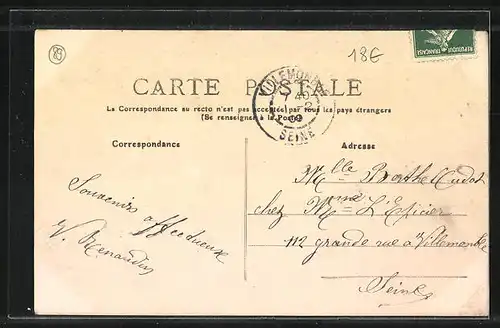 89
18€
REPUBLIQUE FRANÇAISE
CARTE POSTALE
La Correspondance au recto n'est pas acceptée par tous les pays étrangers
(Se renseigner à la Poste)
VILLEMOMBLE
09
SEINE
Correspondance
Adresse
Souvenirs affectueux
V. Renaudin
Mlle Berthe Cudot
chez Mme L'Epicier
112 grande rue à Villemomble
Seine